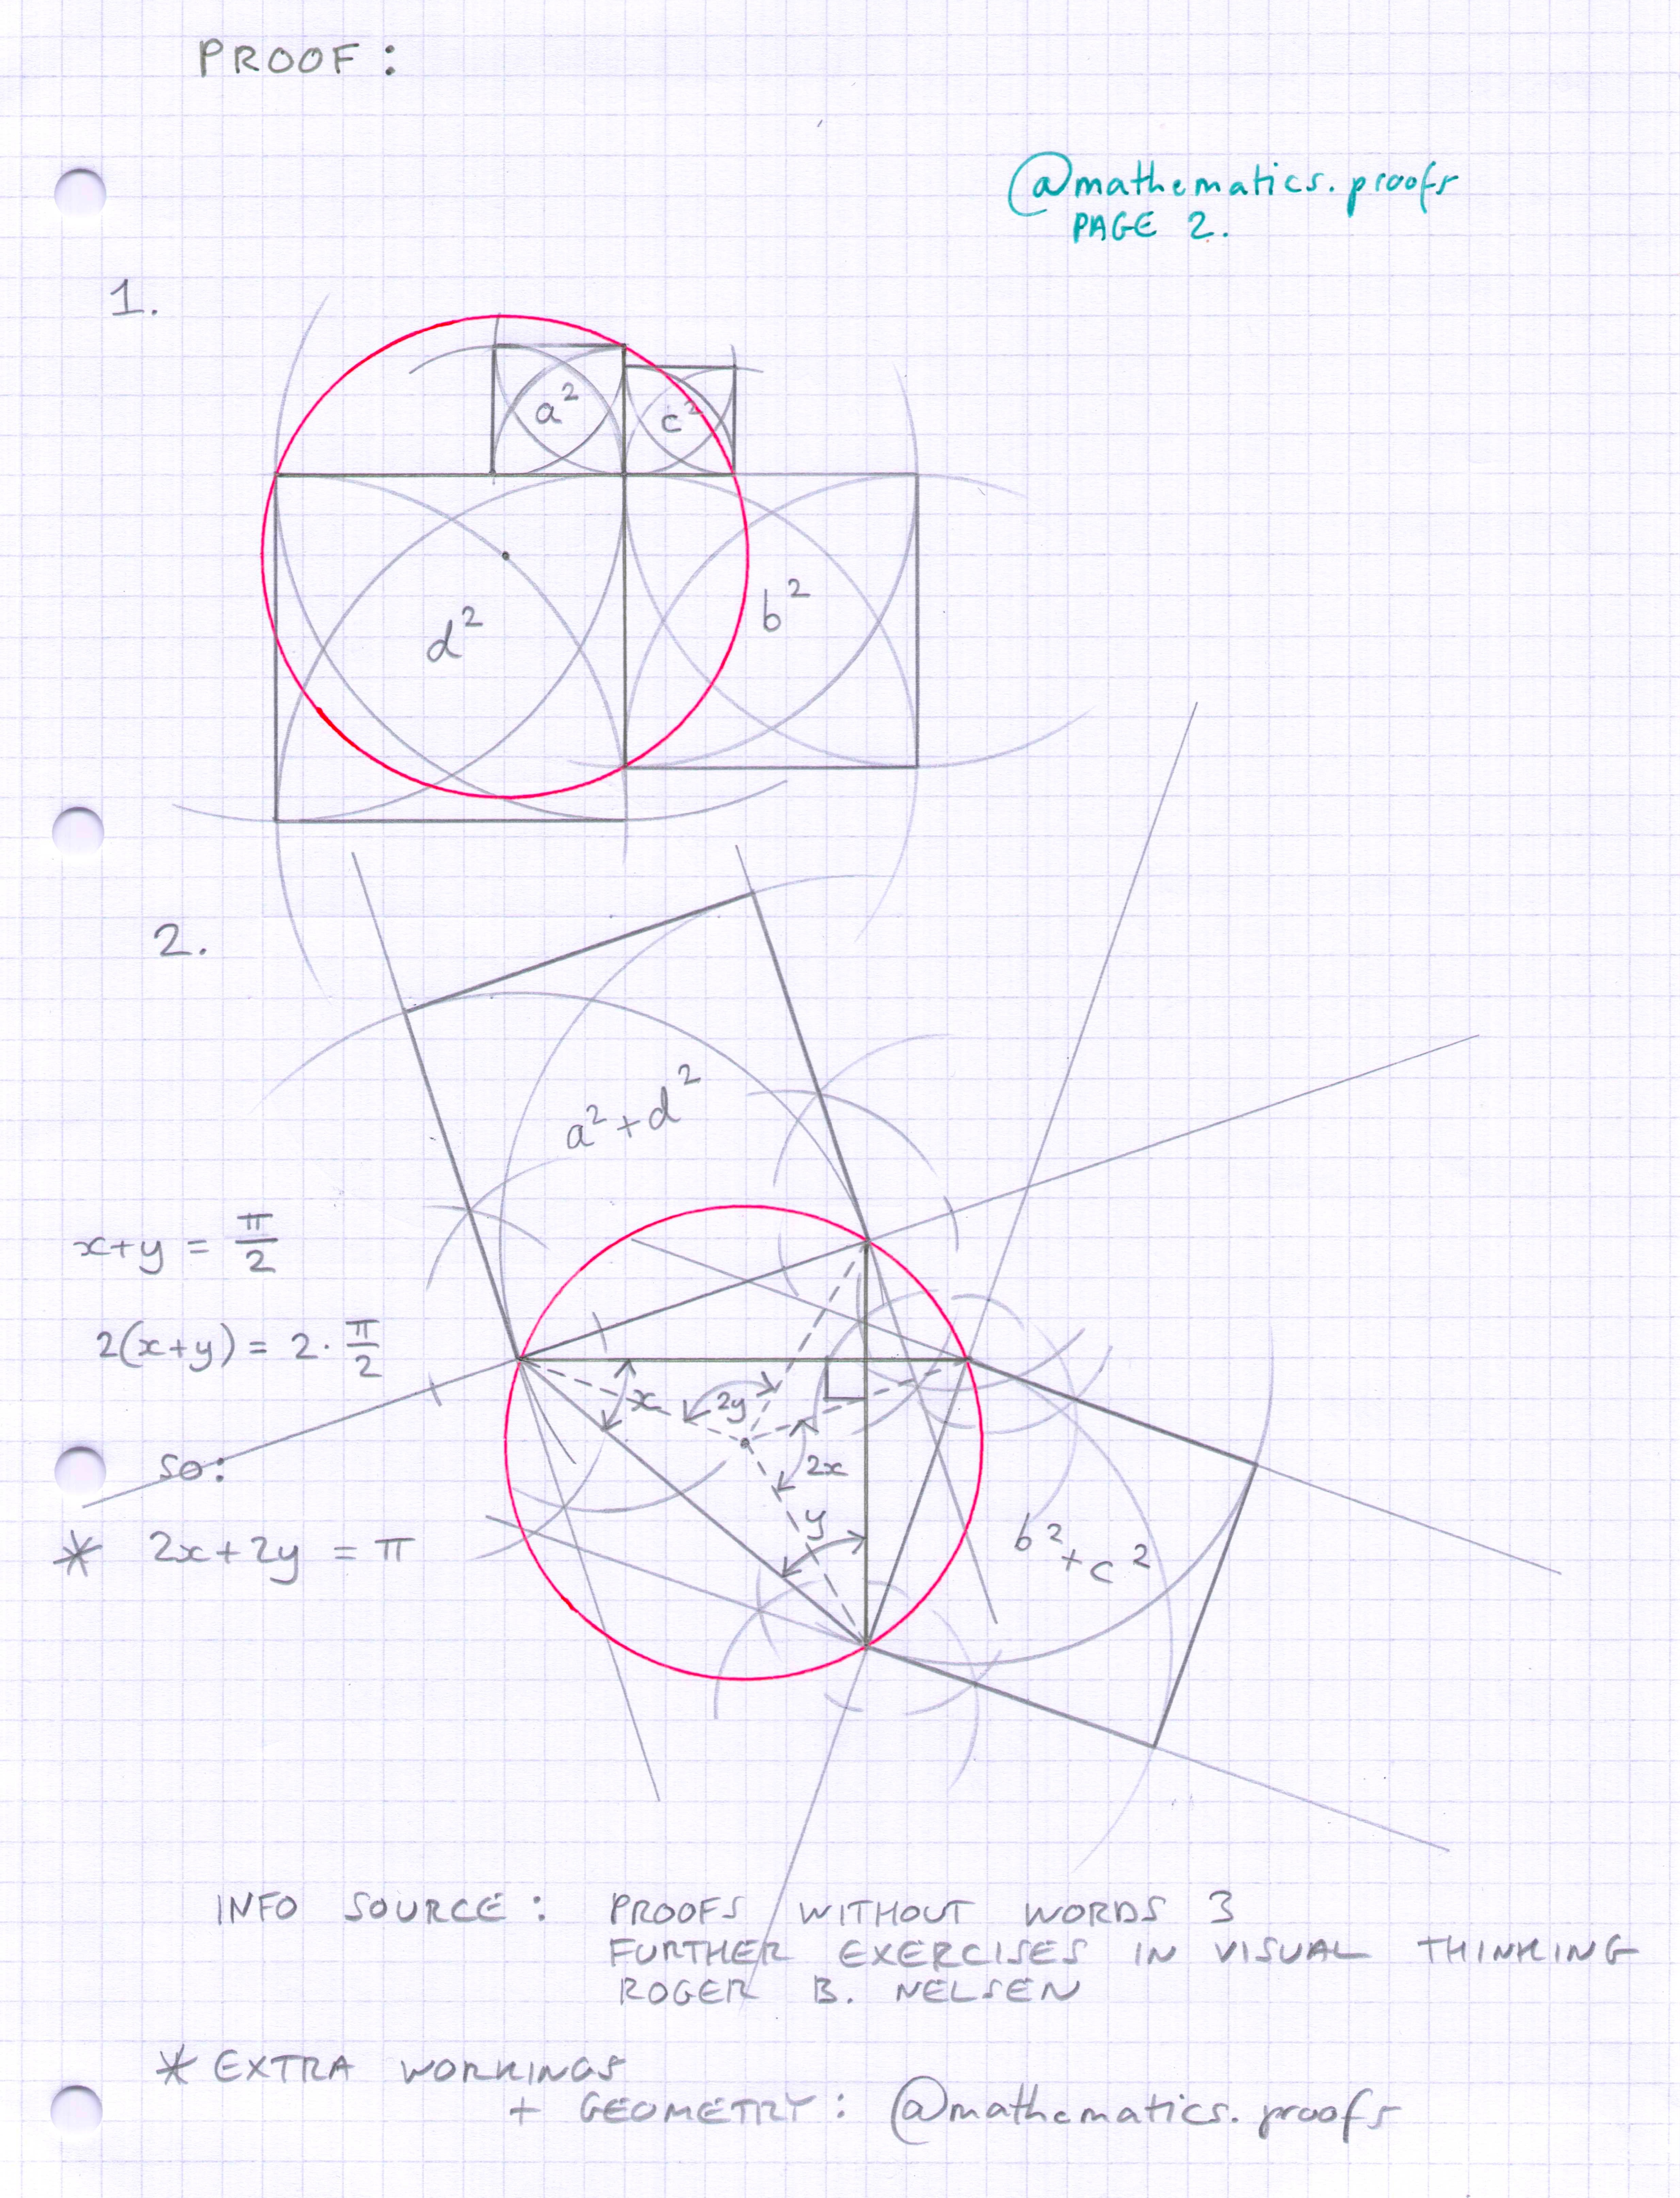 PROOF:
@mathematics.proofs
PAGE 2.
1.
a²
c²
d²
b²
2.
a²+d²
x+y = π/2
2(x+y) = 2·π/2
so:
* 2x+2y = π
x
2y
2x
y
b²+c²
INFO SOURCE: PROOFS WITHOUT WORDS 3
FURTHER EXERCISES IN VISUAL THINKING
ROGER B. NELSEN
* EXTRA WORKINGS
+ GEOMETRY: @mathematics.proofs